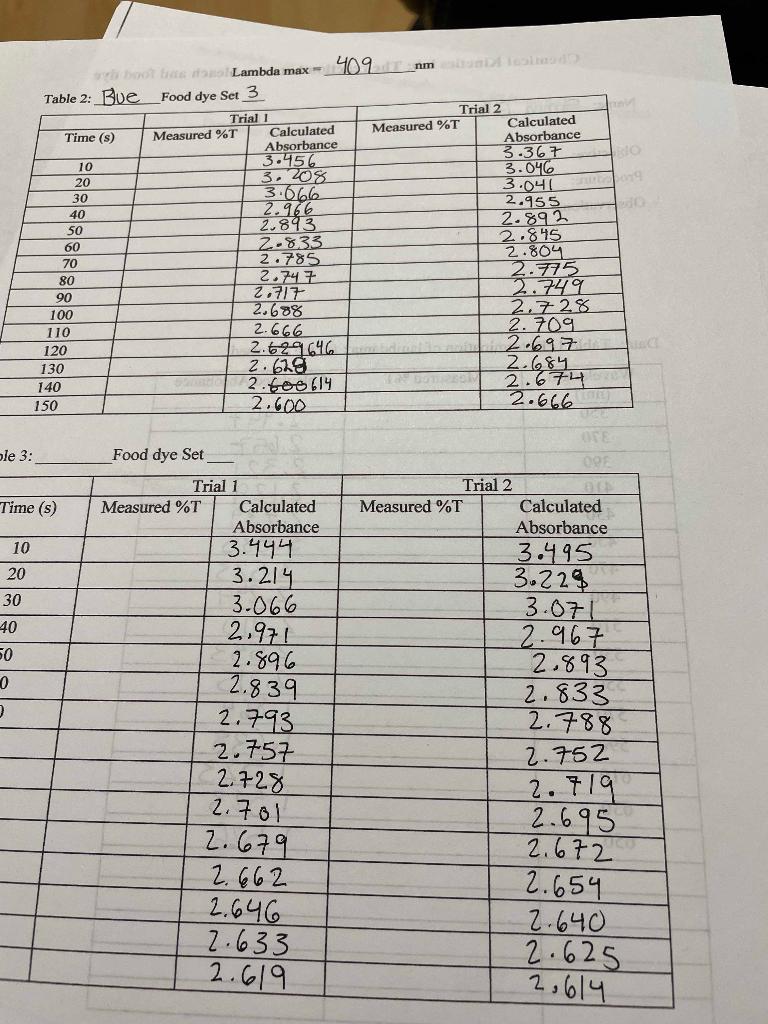 Lambda max = 409 nm
Table 2: Blue Food dye Set 3
Trial 1 Trial 2
Time (s) Measured %T Calculated Absorbance Measured %T Calculated Absorbance
10 3.456 3.367
20 3.208 3.046
30 3.066 3.041
40 2.966 2.955
50 2.893 2.892
60 2.833 2.845
70 2.785 2.804
80 2.747 2.775
90 2.717 2.749
100 2.688 2.728
110 2.666 2.709
120 2.629 646 2.697
130 2.628 2.684
140 2.600 614 2.674
150 2.600 2.666
ple 3: Food dye Set
Trial 1 Trial 2
Time (s) Measured %T Calculated Absorbance Measured %T Calculated Absorbance
10 3.444 3.495
20 3.214 3.229
30 3.066 3.071
40 2.971 2.967
50 2.896 2.893
0 2.839 2.833
0 2.793 2.788
2.757 2.752
2.728 2.719
2.701 2.695
2.679 2.672
2.662 2.654
2.646 2.640
2.633 2.625
2.619 2.614